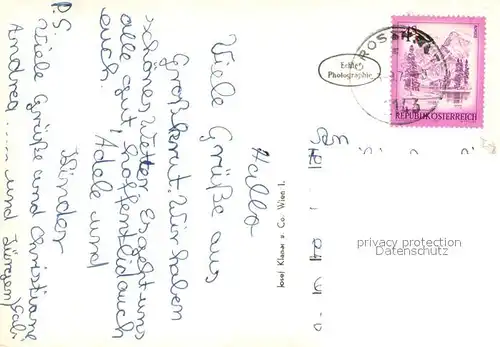 Hallo
Viele Grüße aus
Großkrut. Wir haben
schönes Wetter. Es geht uns
alle gut, hoffentlich auch
euch.
Adele und
Kinder
P.S
Viele Grüße und Christiane
Andrea ..... und
Echte
Photographie
ROSSKRUT
2143
REPUBLIK ÖSTERREICH
Josef Klaner u. Co. Wien I.
privacy protection
Datenschutz